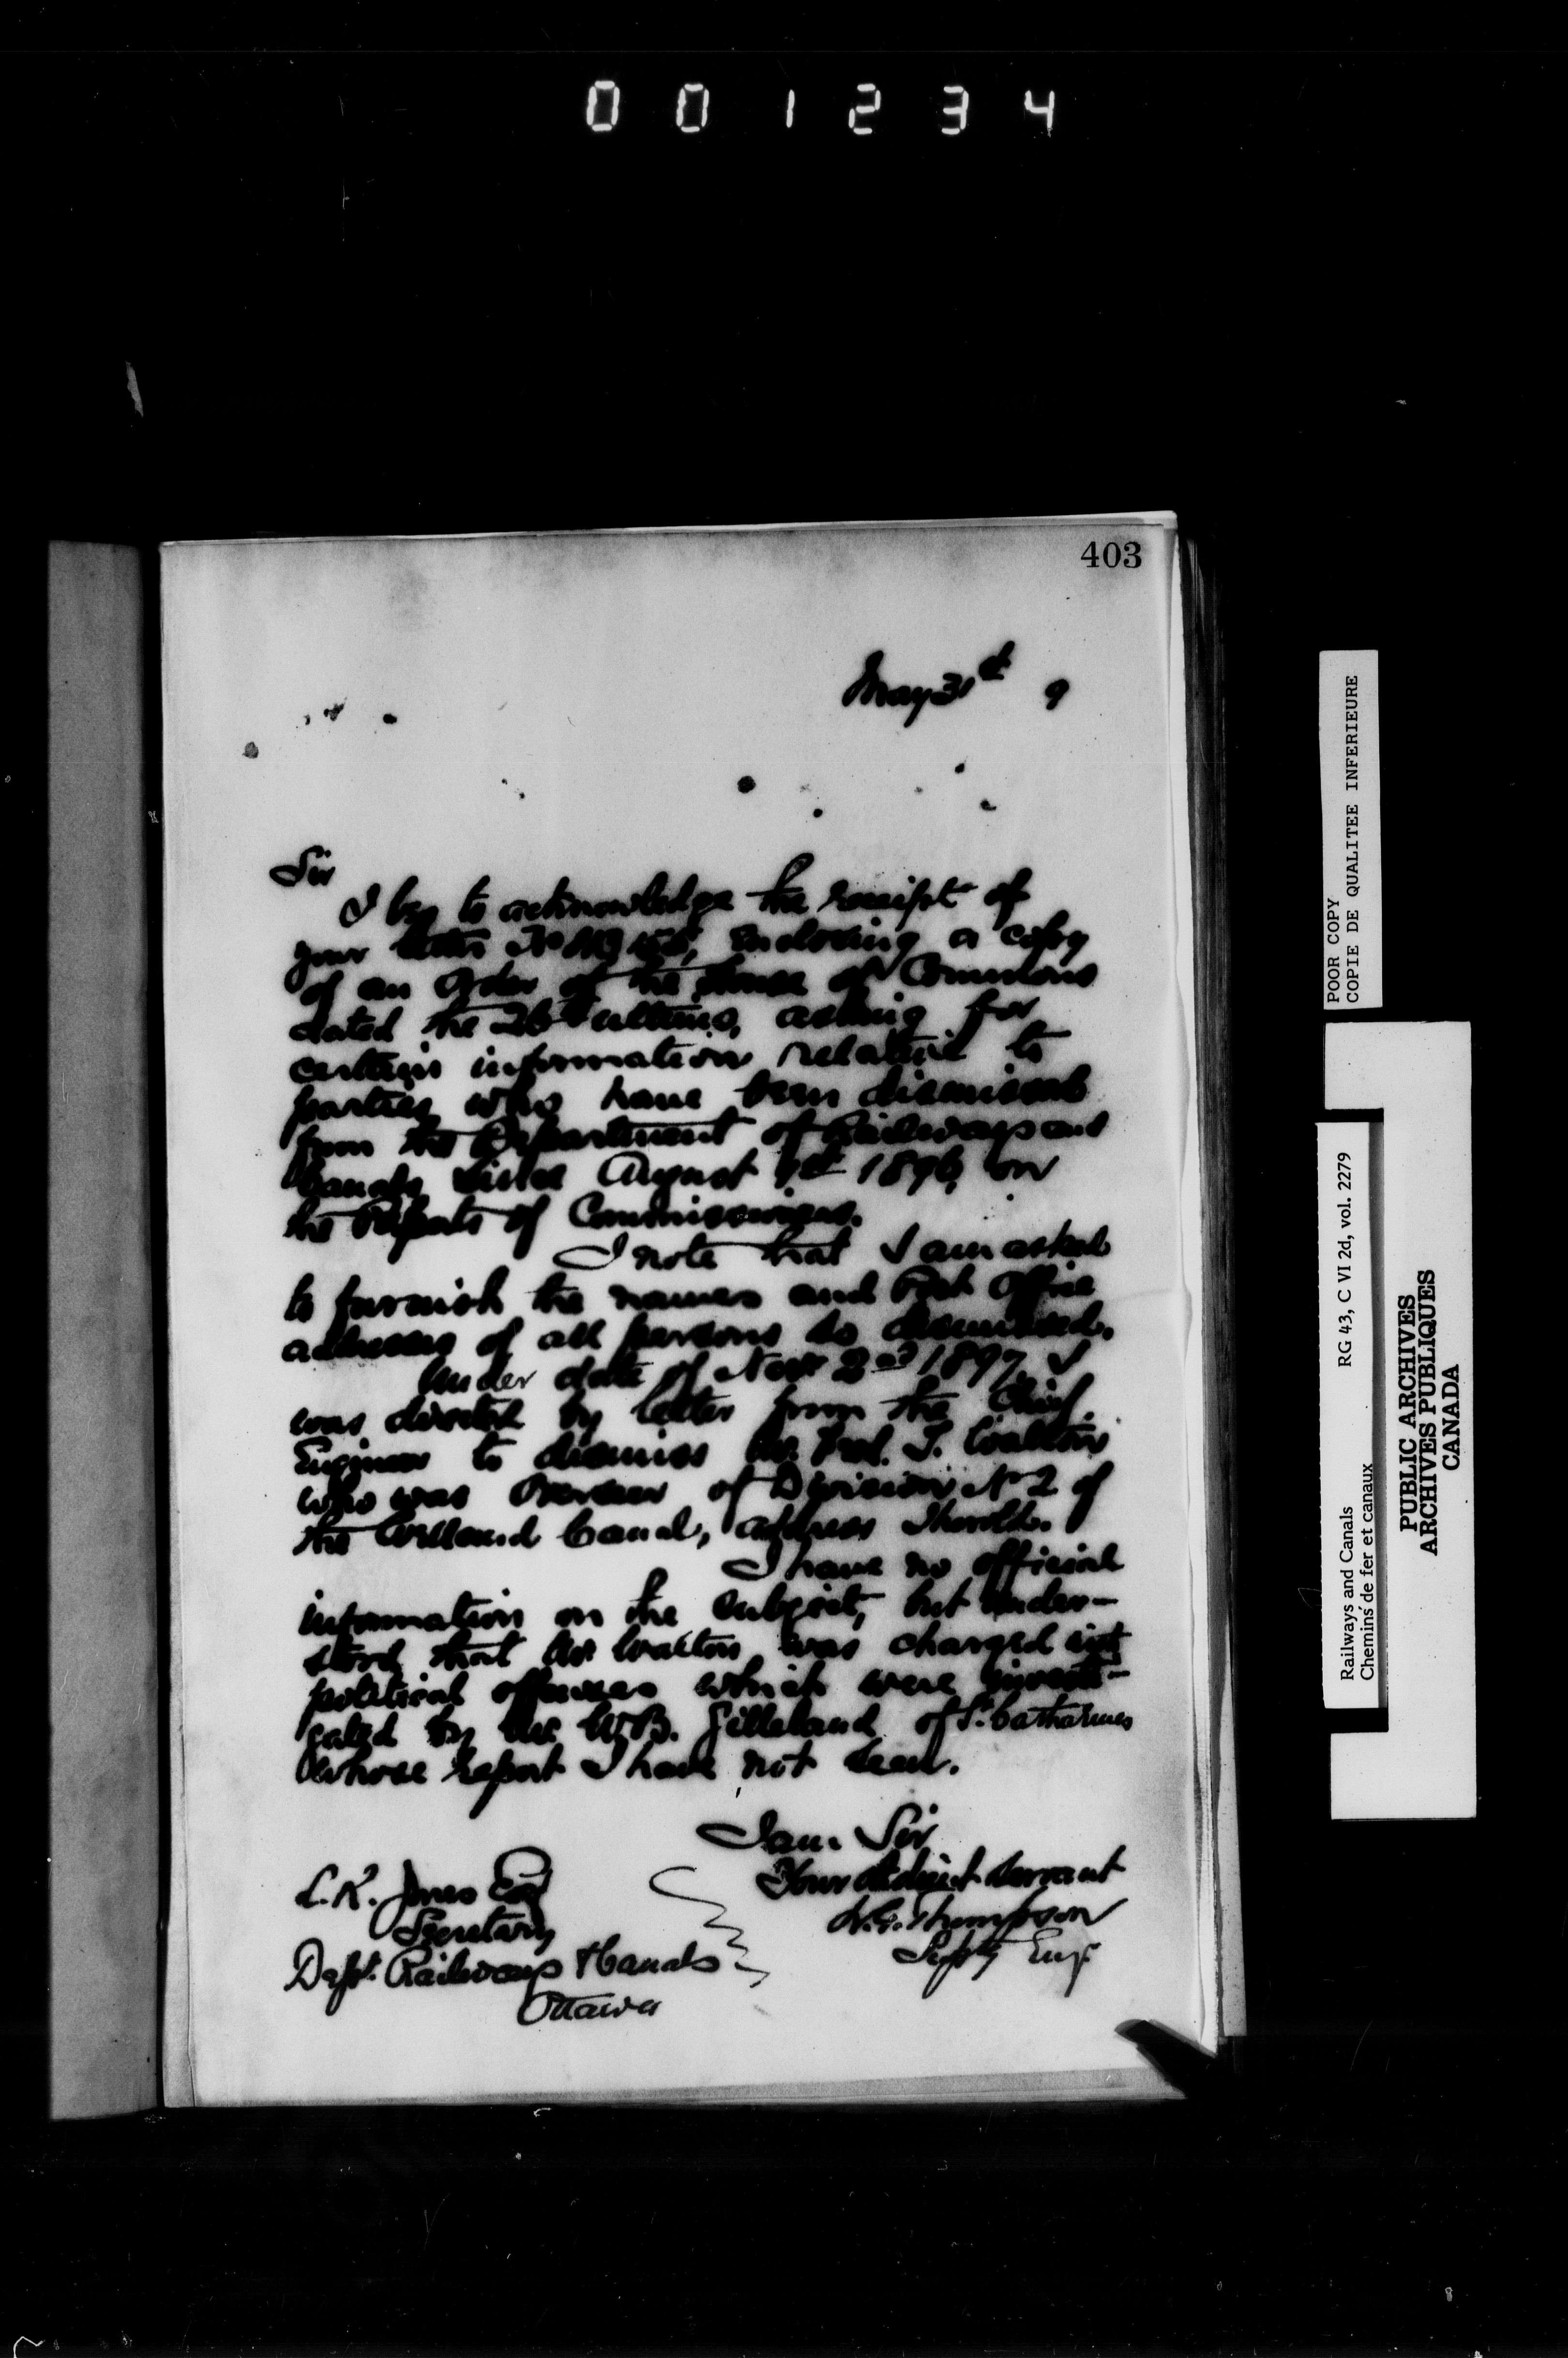 0 0 1 2 3 4
403
May 31st 9
Sir
I beg to acknowledge the receipt of
your letter No enclosing a copy
of an Order of the House of Commons
dated the ultimo, asking for
certain information relative to
parties who have been dismissed
from the Department of Railways and
Canals since August 1st 1896, on
the Reports of Commissioners.
I note that I am asked
to furnish the names and Post Office
addresses of all persons so dismissed.
Under date of Novr 2nd 1897, I
was directed by letter from the Chief
Engineer to dismiss Mr. Fred. J. Walton
who was Overseer of Division No 2 of
the Welland Canal, address Thorold.
I have no official
information on the subject, but under-
stood that Mr Walton was charged with
political offences which were investi-
gated by Mr. W.B. Gilleland of St. Catharines
whose report I have not seen.
I am, Sir
Your obedient servant
W.G. Thompson
Supty Engr
L.K. Jones Esq
Secretary
Dept. Railways & Canals
Ottawa
POOR COPY
COPIE DE QUALITEE INFERIEURE
Railways and Canals RG 43, C VI 2d, vol. 2279
Chemins de fer et canaux
PUBLIC ARCHIVES
ARCHIVES PUBLIQUES
CANADA